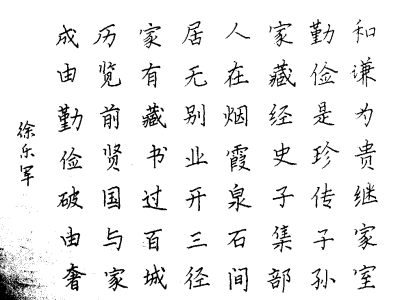 和谦为贵继家室
勤俭是珍传子孙
家藏经史子集部
人在烟霞泉石间
居无别业开三径
家有藏书过百城
历览前贤国与家
成由勤俭破由奢
徐乐军